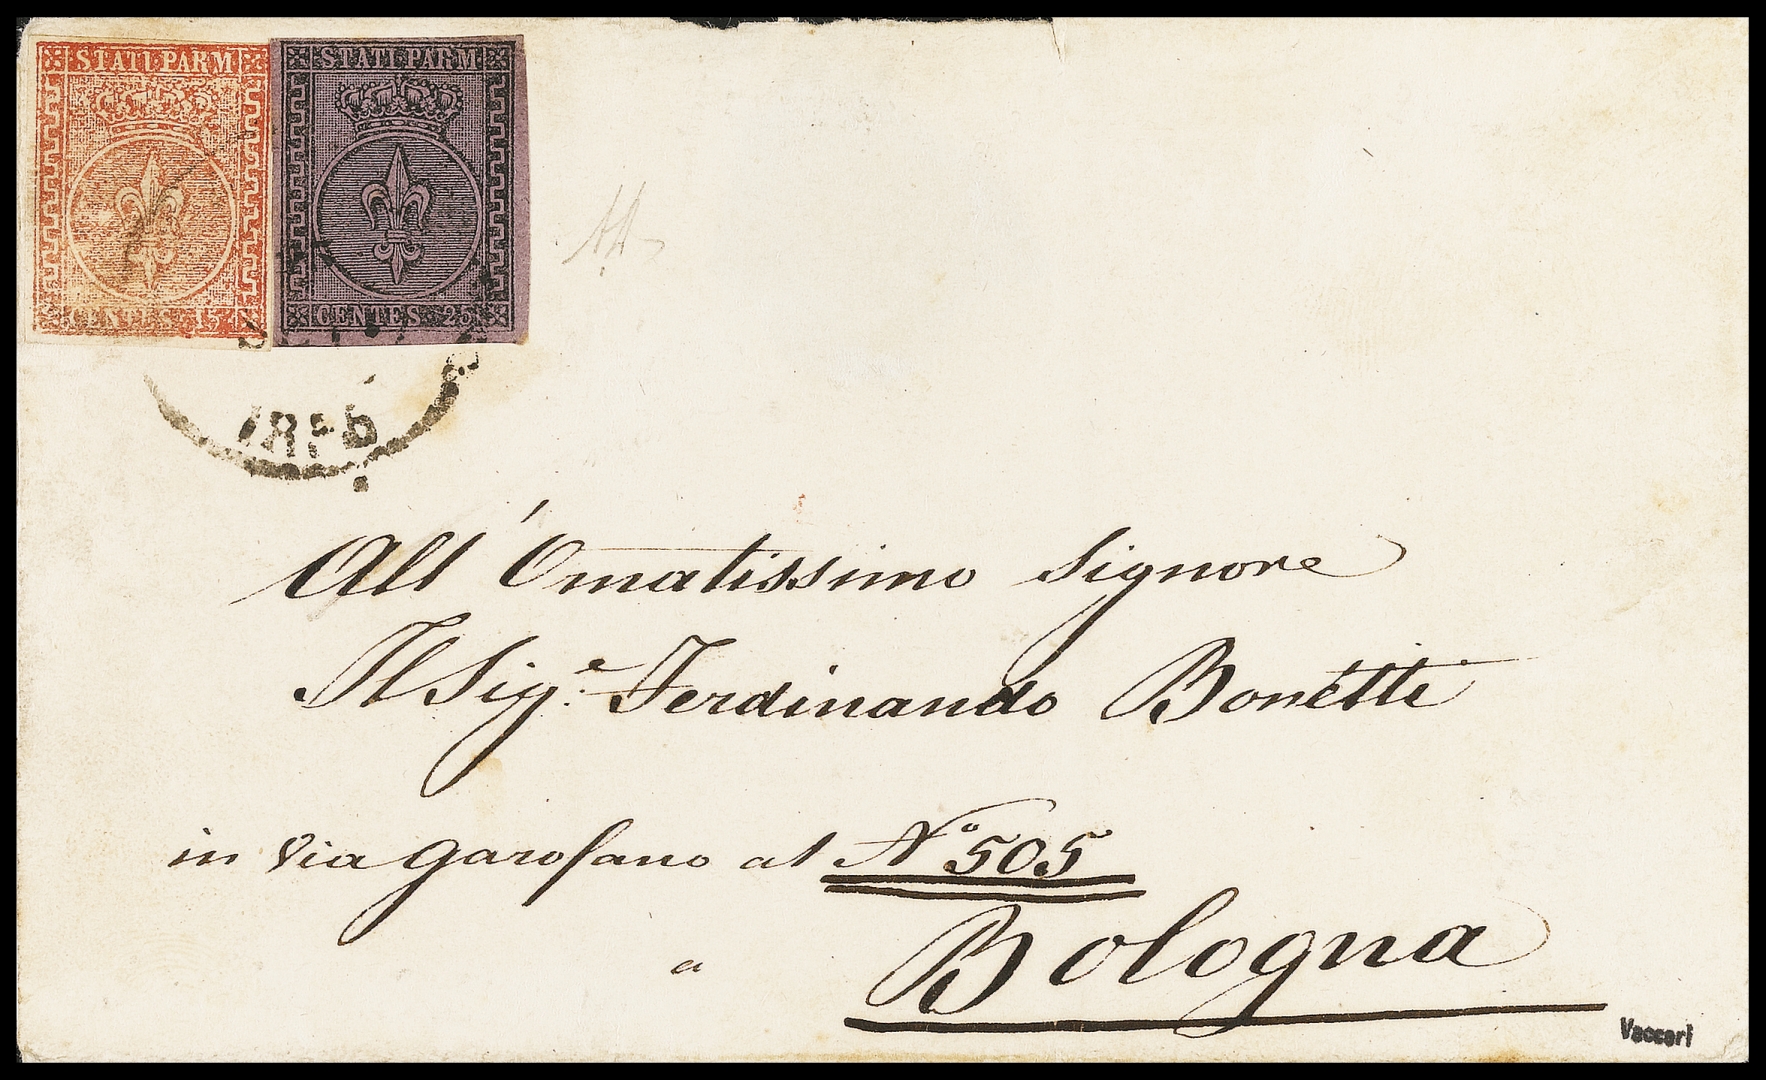 STATI PARM
CENTES 15
STATI PARM
CENTES 25
All' Ornatissimo Signore
Il Sig.e Ferdinando Bonetti
in Via Garofano al No 505
a
Bologna
Vaccari